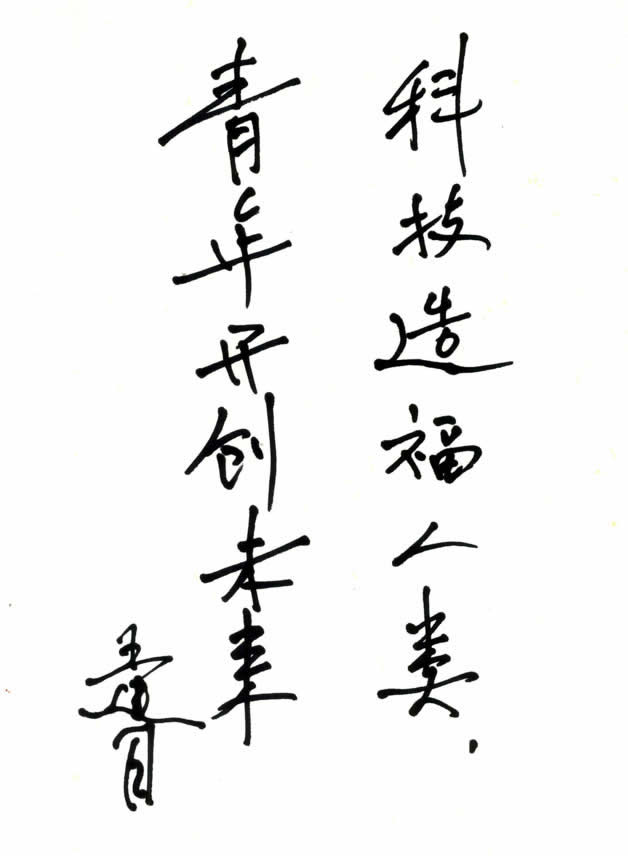 科技造福人类.
青年开创未来